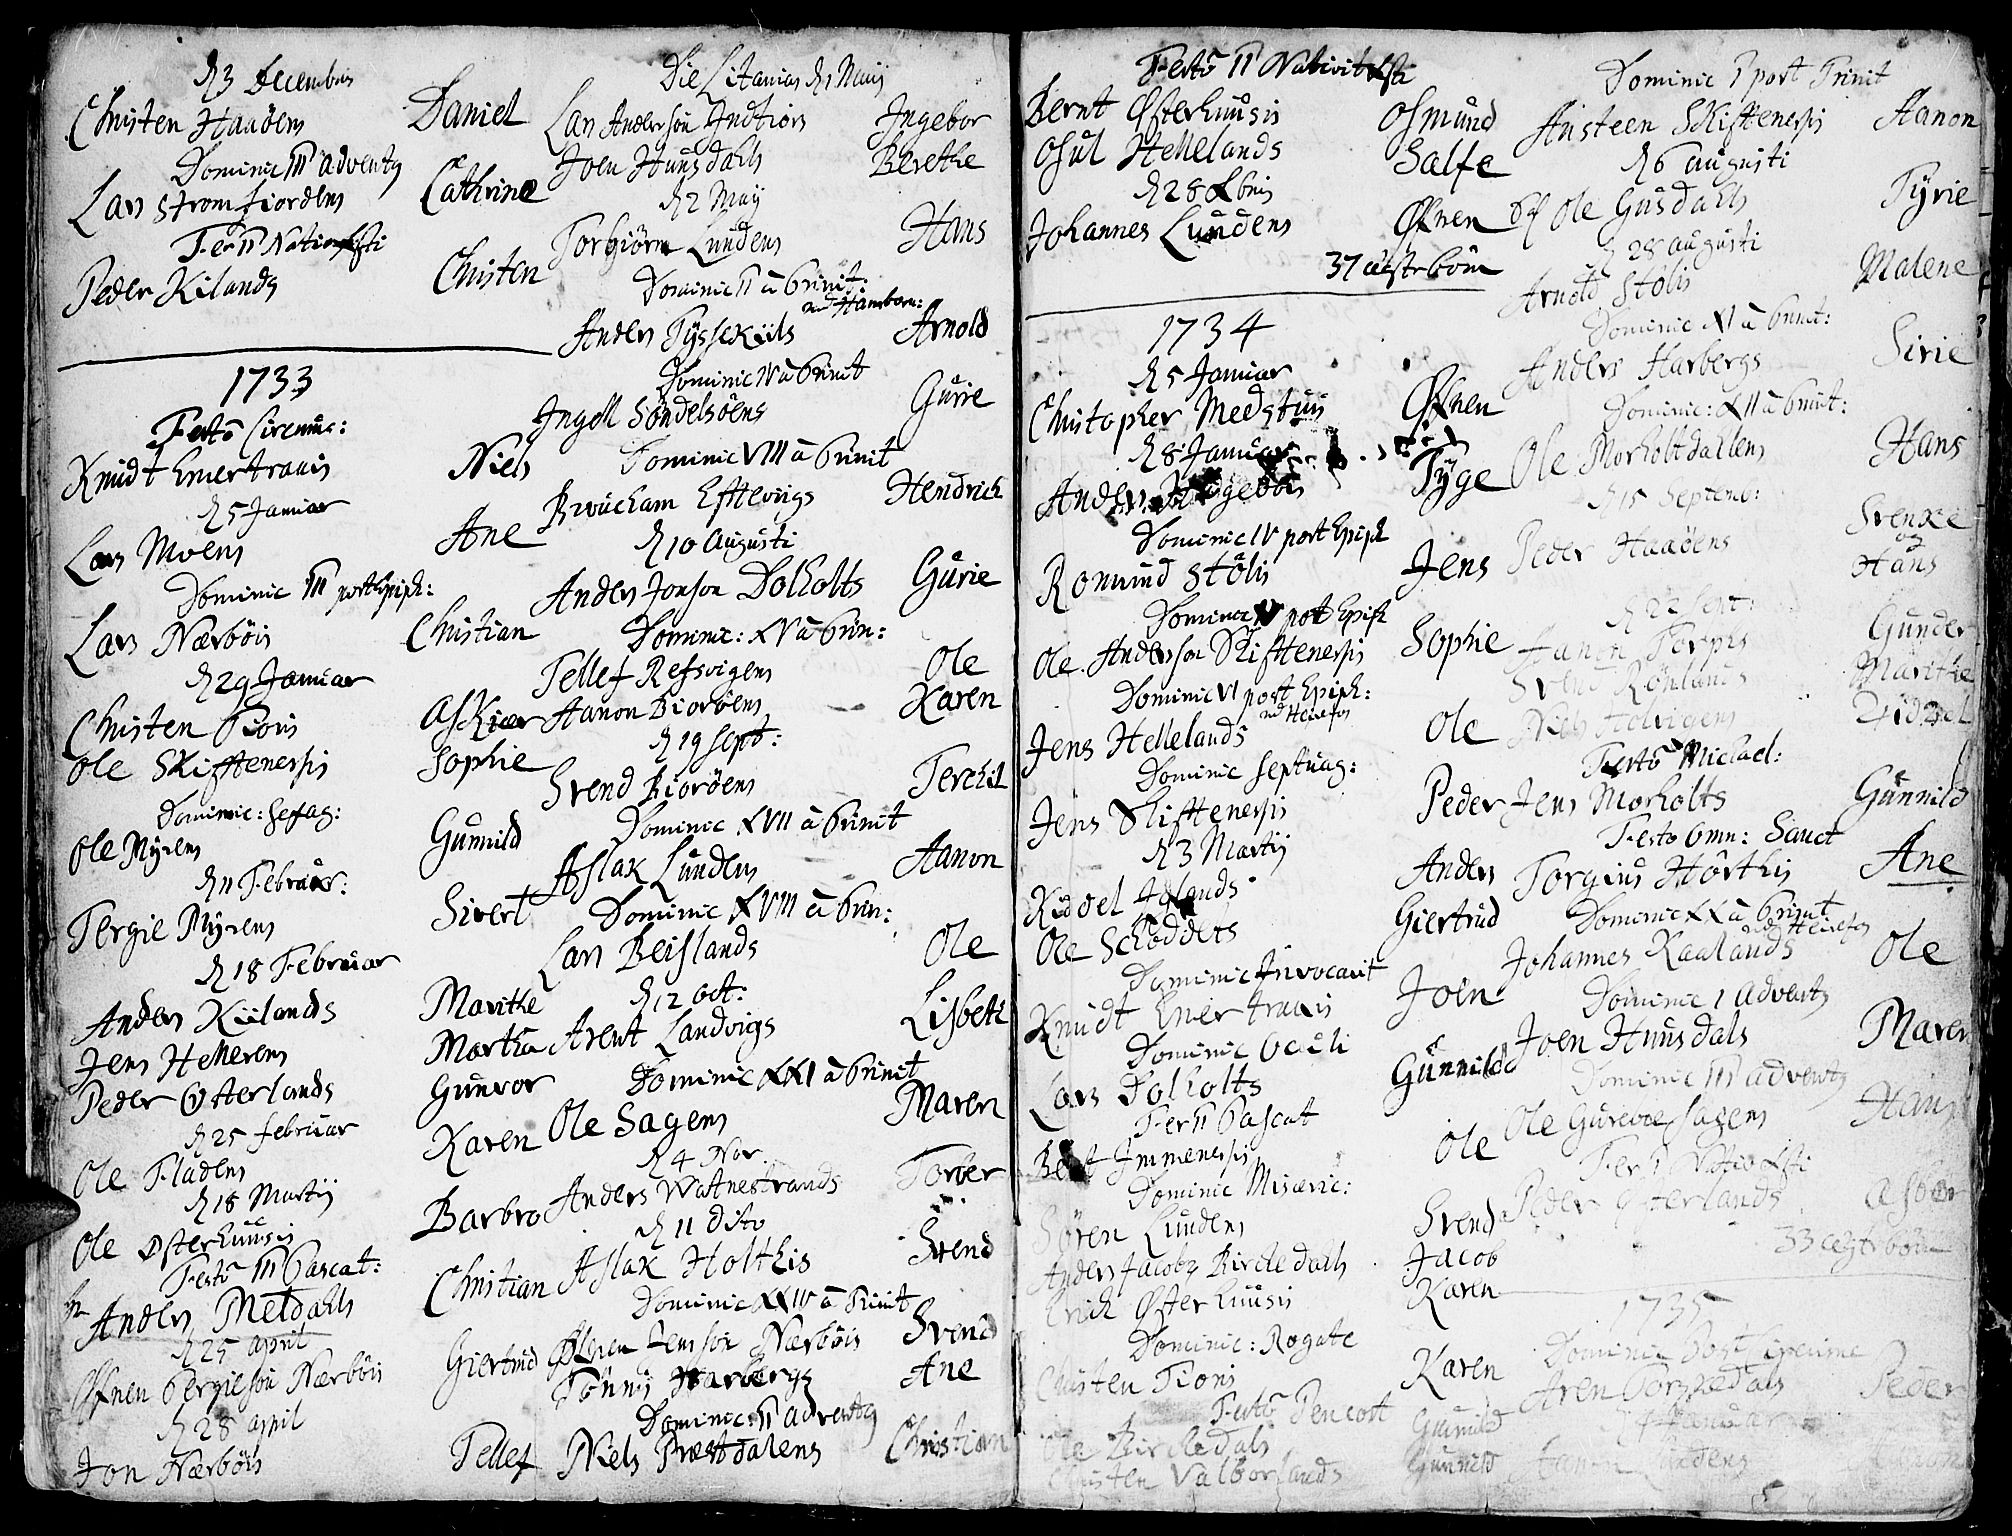 d 3 Decembris
Christen Haaøens Daniel
Dominic III advents
Lars Strømfiordens Cathrine
Fer II Nativ Xsti
Peder Kilands Christen
1733
Festo Circumc:
Knudt Emertrauis Niels
d 5 Januar
Lars Moens Ane
Dominic III post Epiph:
Lars Nærbøis Christian
d 29 Januar
Christen Tioris Askier
Ole Skifftenessis Sophie
Dominic: Sexag:
Ole Myrens Gunnild
d 11 Februar:
Tergie Myrens Sivert
d 18 Februar
Anders Kiilands Marithe
Jens Hellerens Martha
Peder Osterlands Gunvor
d 25 februar
Ole Fladens Karen
d 18 Martij
Ole Østerhuusis Barbro
Festo III Pascat:
Anders Metdahls Christian
d 25 april
Øfnen Tergieson Nærbøis Giertrud
d 28 april
Jon Nærbøis Tellef
Die Litanias d 1 Maij
Lars Anderson Indtiors Ingebor
Joen Huusdahls Berethe
d 2 Maij
Torbiørn Lundens Hans
Dominic II a Trinit:
Anders Tyssekiils Arnold
Dominic IV a Trinit
Ingell Søndelsøens Gurie
Dominic VIII a Trinit
Efftevigs Hendrich
d 10 Augusti
Anders Jonson Dolholts Gurie
Dominic: XV a Trin:
Tellef Refsvigens Ole
Aanon Biorøens Karen
d 19 Sept:
Svend Biorøens Terchil
Dominic XVII a Trinit
Aslak Lundens Aanon
Dominic XVIII a Trin:
Lars Beislands Ole
d 12 Oct:
Arent Landvigs Lisbeth
Dominic XXI a Trinit
Ole Sagens Maren
d 4 Nov.
Anders Watnestrands Torber
d 11 dito
Aslak Holthis Svend
Dominic XXIV a Trinit
Jenson Nærbøis Svend
Tønnis Harbergs Ane
Dominic: II Advents
Niels Præstdalens Christian
Festo II Nativit Xsti
Bernt Østerhuusis Osmund
Osul Hellelands Salfe
d 28 Xbris
Johannes Lundens Øfnen
37
1734
d 5 Januar
Christopher Medstuis Øfnen
d 8 Januar
Anders Tyge
Dominic IV post Epiph
Romund Stølis Jens
Dominic V post Epiph
Ole Anderson Skifftenessis Sophie
Dominic VI post Epiph:
Jens Hellelands Ole
Dominic Septuag:
Jens Skifftenessis Peder
d 3 Martij
Kiddel Iglands Anders
Ole Scheddets Giertrud
Dominic Invocavit
Knudt Emertrauis Joen
Dominic Oculi
Lars Dolholts Gunnild
Fer II Pascat
Bernt Immenessis Ole
Dominic Miseric:
Søren Lundens Svend
Anders Jacobs Bircledahls Jacob
Erich Østerhuusis Karen
Dominic: Rogate
Christen Tioris Karen
Festo Pencost
Ole Bircledals Gunnild
Christen Valborlands Gunnild
Dominic I post Trinit
Ansteen Skifftenessis Aanon
d 6 augusti
Ole Gusdahls Tyrie
d 28 augusti
Arnold Stølis Malene
Dominic XI a Trinit:
Anders Harbergs Sirie
Dominic: XII a Trinit:
Ole Morholtdallens Hans
d 15 Septemb:
Peder Haaøens Svenke
og
Hans
d 22 Sept:
Aanon Torpis Gunder
Svend Rønlands Marithe
Niels
Festo Michael:
Jens Morholts Gunnild
Festo Omn: Sanct
Torgius Hørthis Ane
Dominic XX a Trinit
Johannes Kaalands Ole
Dominic I Advents
Joen Huusdals Maren
Dominic III advents
Ole Sagens Hans
Fer II Nativ Xsti
Peder Osterlands
33
1735
Dominic Post
Aren Peder
d Januar
Aanon Lundens
5